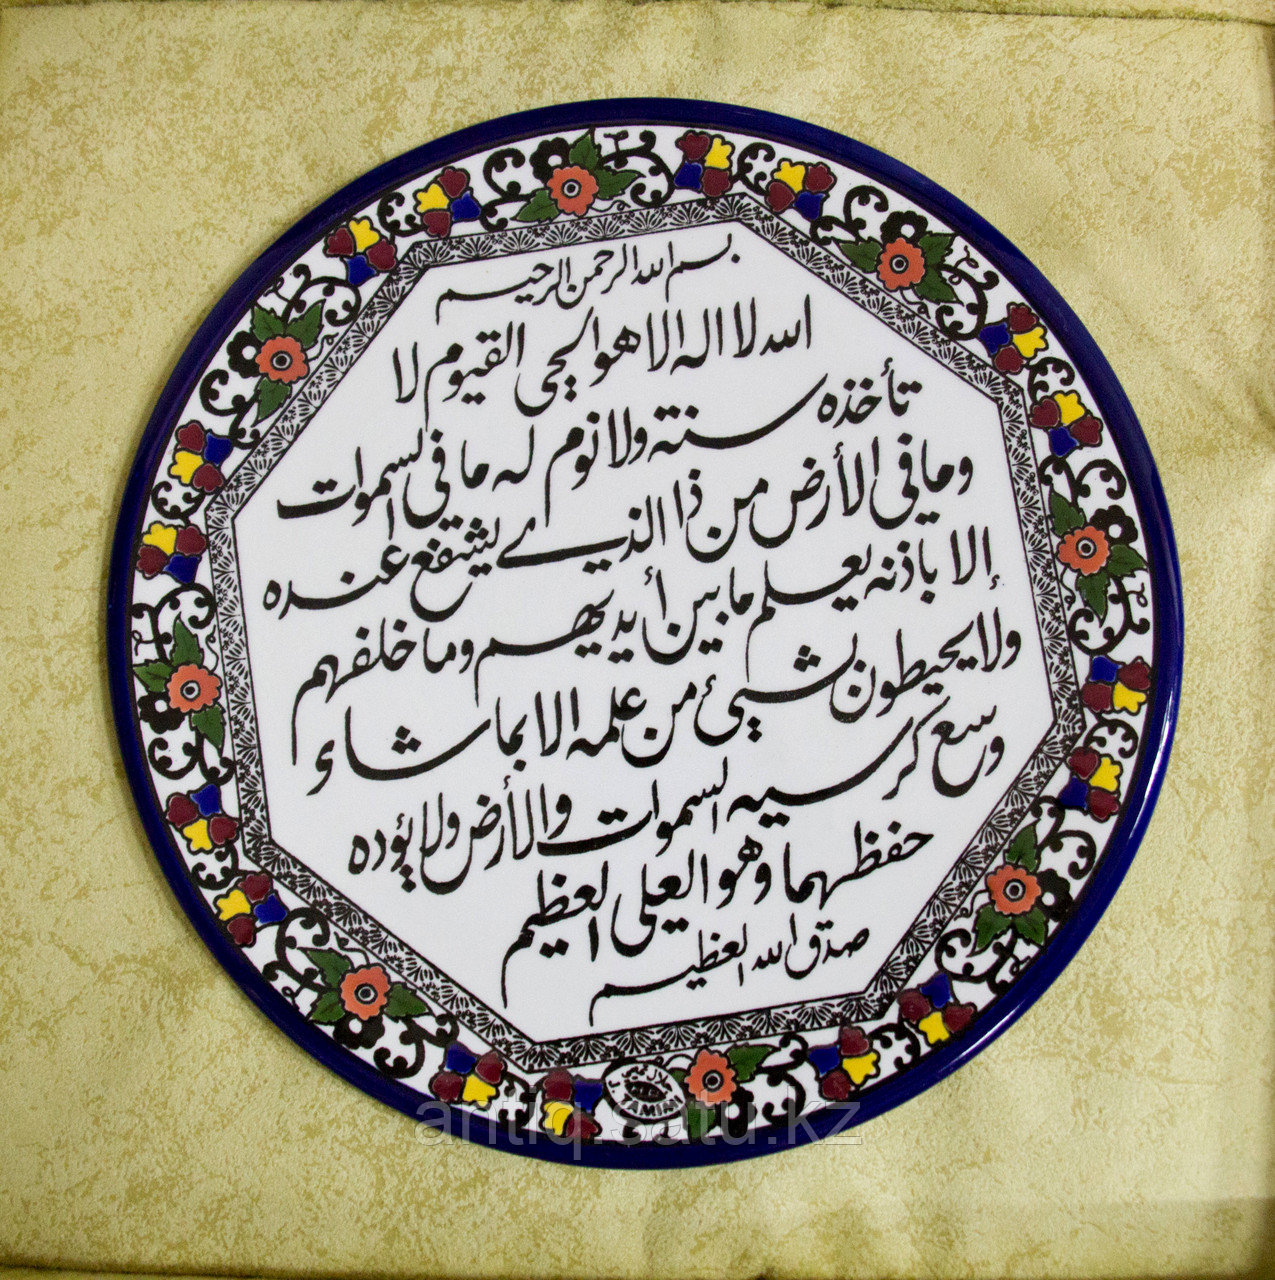 بسم الله الرحمن الرحيم
الله لا اله الا هو الحي القيوم لا
تأخذه سنته ولا نوم له ما في السموات
وما في الأرض من ذا الذي يشفع عنده
إلا باذنه يعلم ما بين أيديهم وما خلفهم
ولا يحيطون بشيئ من علمه الا بما شاء
وسع كرسيه السموات والأرض ولا يؤده
حفظهما وهو العلي العظيم
صدق الله العظيم
TAMIMI
antiq.satu.kz